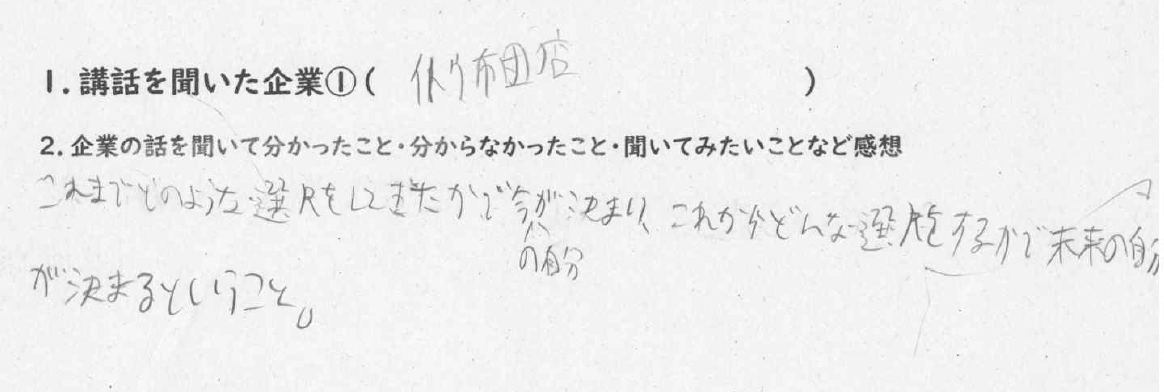 1. 講話を聞いた企業①( 布団店 )
2. 企業の話を聞いて分かったこと・分からなかったこと・聞いてみたいことなど感想
これまでどのような選尺をしてきたかで今が決まり、これからどんな選尺をするかで未来の自分
の自分
が決まるということ。